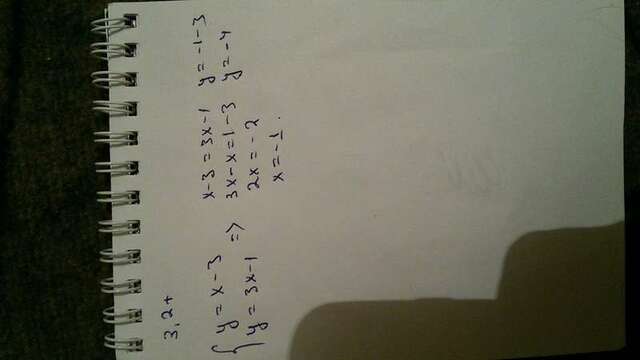 3,2+
{ y = x - 3
y = 3x - 1 =>
x - 3 = 3x - 1
3x - x = 1 - 3
2x = - 2
x = - 1 .
y = - 1 - 3
y = - 4